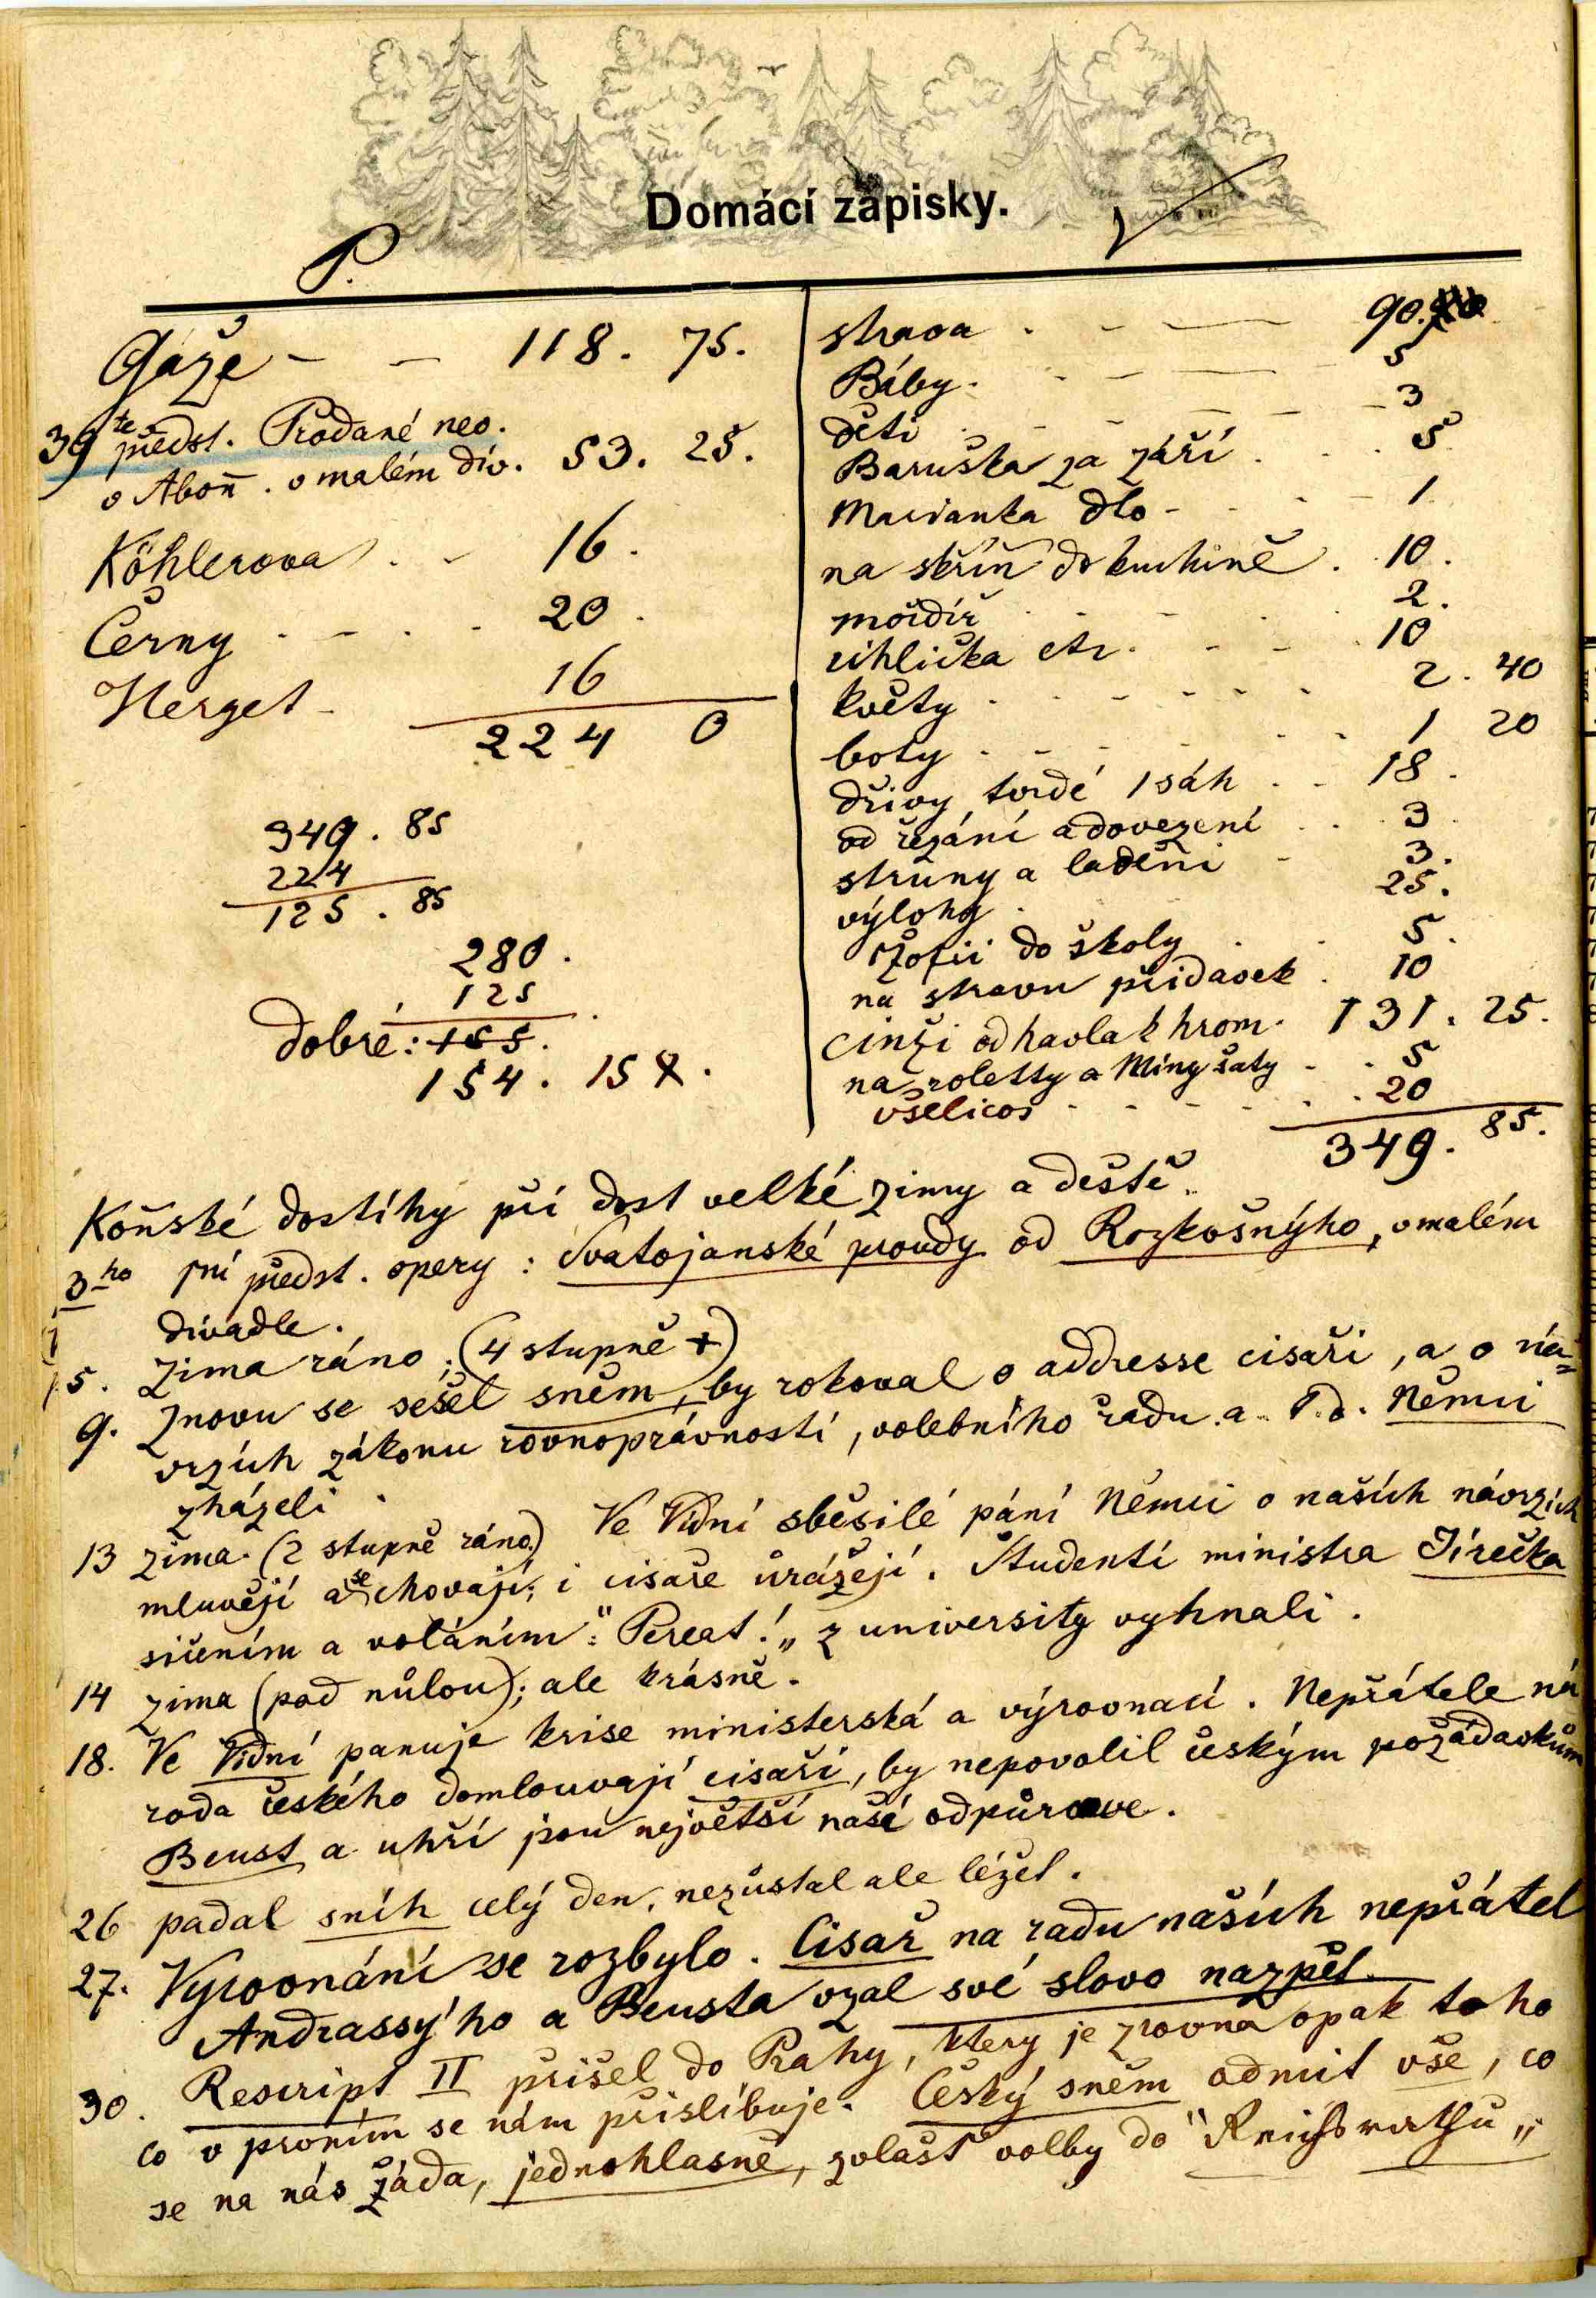 Domácí zápisky.
P.
Gáže - - 118. 75.
39te předst. Prodané nev.
v Aboñ. v malém div. 53. 25.
Köhlerova . - 16.
Černy - - . . 20.
Herget - 16
224 0
349. 85
224
125. 85
280.
125
dobré: 155.
154. 15
strava . - - 90.
Báby. . - - 5
děti . - - - 3
Baruška za záři . . . 5
Marianka dto - - - 1
na skříň do kuchině . 10.
moždíř . - - . 2.
cihlička etc. - - 10
květy . - - - - - 2. 40
boty . - - - - - 1 20
dřívy tvrdé 1 sáh . . 18.
od řezání a dovezení . . 3
struny a ladění - 3.
výlohy . 25.
Žofii do školy . . 5.
na stravu přídavek . 10
činži od havla k hrom. 131. 25.
na roletty a Míny šaty - - 5
všelicos - - - - . . 20
349. 85.
Koňské dostihy při dost velké zimy a deště.
3ho prní předst. opery: Svatojanské proudy od Rozkošnýho, v malém
divadle.
5. Zima ráno; (4 stupně +)
9. Znovu se sešel sněm, by rokoval o addresse cisaři, a o ná-
vrzích zákonu rovnoprávnosti, volebního řadu a. t. d. Němci
zházeli.
13 zima. (2 stupně ráno.) Ve Vídni sběsilé páni Němci o naších návrzích
mluvějí a se chovají; i cisaře urážejí. Študenti ministra Jirečka
sičením a voláním: "Pereat!„ z university vyhnali.
14 zima (pod nůlou); ale krásně.
18. Ve Vídni panuje krise ministerská a výrovnací. Nepřátele ná
roda českého domlouvají cisaři, by nepovolil českým požádavkům
Beust a uhří jsou největší naše odpůrcove.
26 padal sníh celý den, nezůstal ale léžet.
27. Vyrovnání se rozbylo. Cisař na radu naších nepřátel
Andrassý'ho a Beusta vzal své slovo nazpět.
30. Rescript II přišel do Prahy, ktery je zrovna opak toho
co v prvním se nám přislibuje. Český sněm odmít vše, co
se na nás žáda, jednohlasně, zvlášť volby do "Reichsrathsu„